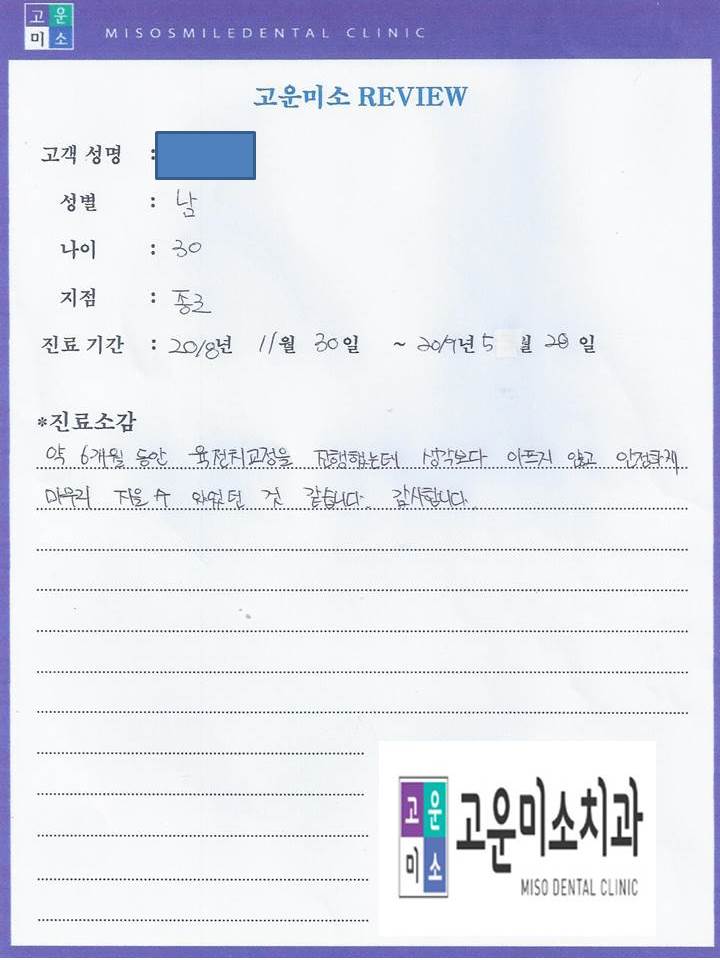 고운
미소
MISOSMILEDENTAL CLINIC
고운미소 REVIEW
고객 성명 :
성별 : 남
나이 : 30
지점 : 종로
진료 기간 : 2018년 11월 30일 ~ 2019년 5월 28일
*진료소감
약 6개월 동안 육전치교정을 진행했는데 생각보다 아프지 않고 안정하게
마무리 지을 수 있었던 것 같습니다. 감사합니다.
고운
미소
고운미소치과
MISO DENTAL CLINIC